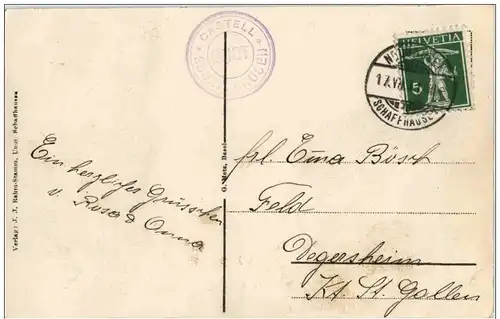 CASTELL
HELVETIA
5
SCHAFFHAUSEN
Verlag: J. J. Rahm-Stamm, Unt. Schaffhausen
G. Metz, Basel
Ein herzliches Grüsschen
v. Rosa & Anna
Frl. Emma Bösch
Feld
Degersheim
Kt. St. Gallen